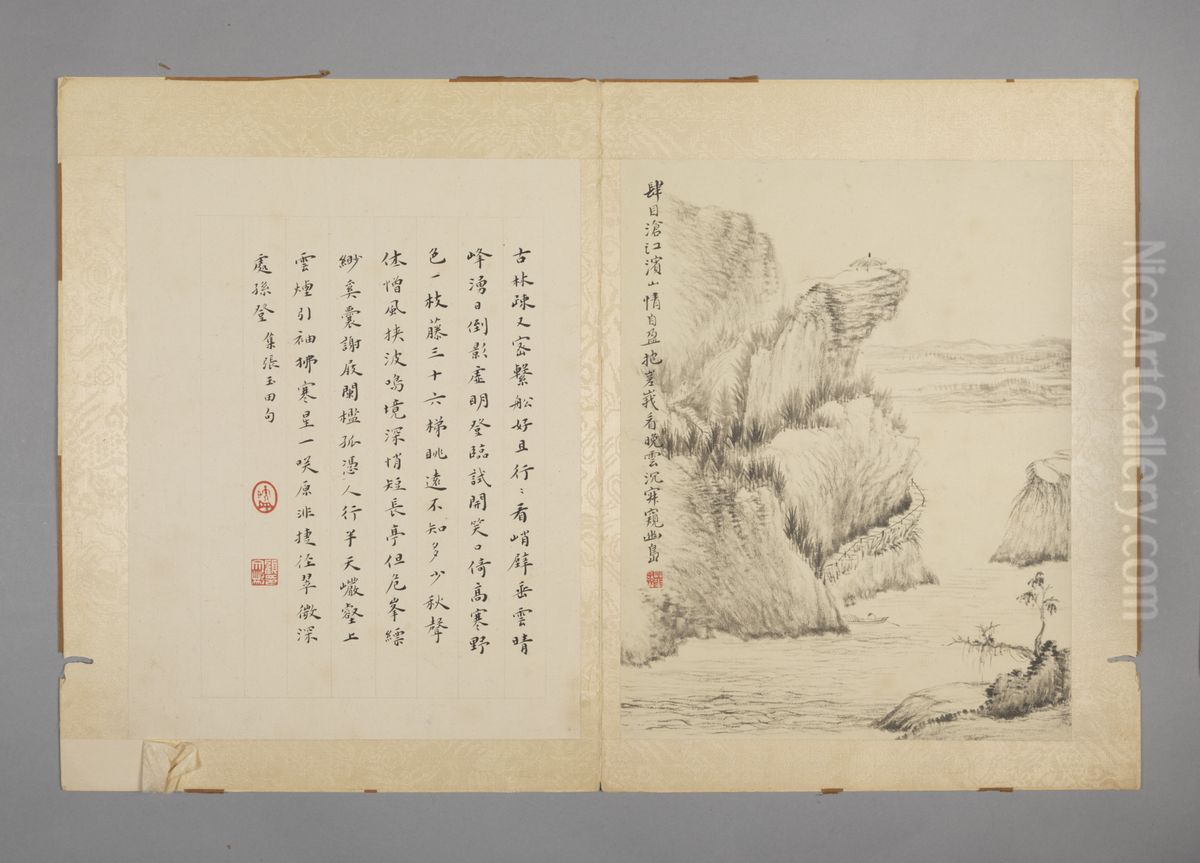 肆目滄江濱山情自盈抱嵳峩看晚雲沉寂窺幽島
古林疎又密繫船好且行〻看峭壁垂雲晴
峰湧日倒影虛明登臨試開笑口倚高寒野
色一枝藤三十六梯眺遠不知多少秋聲
休憎風挾波鳴境深悄短長亭但危峯縹
緲奚囊謝屐闌檻孤憑人行半天巖壑上
雲煙引袖拂寒星一咲原非捷徑翠微深
處孫登 集張玉田句
NiceArtGallery.com